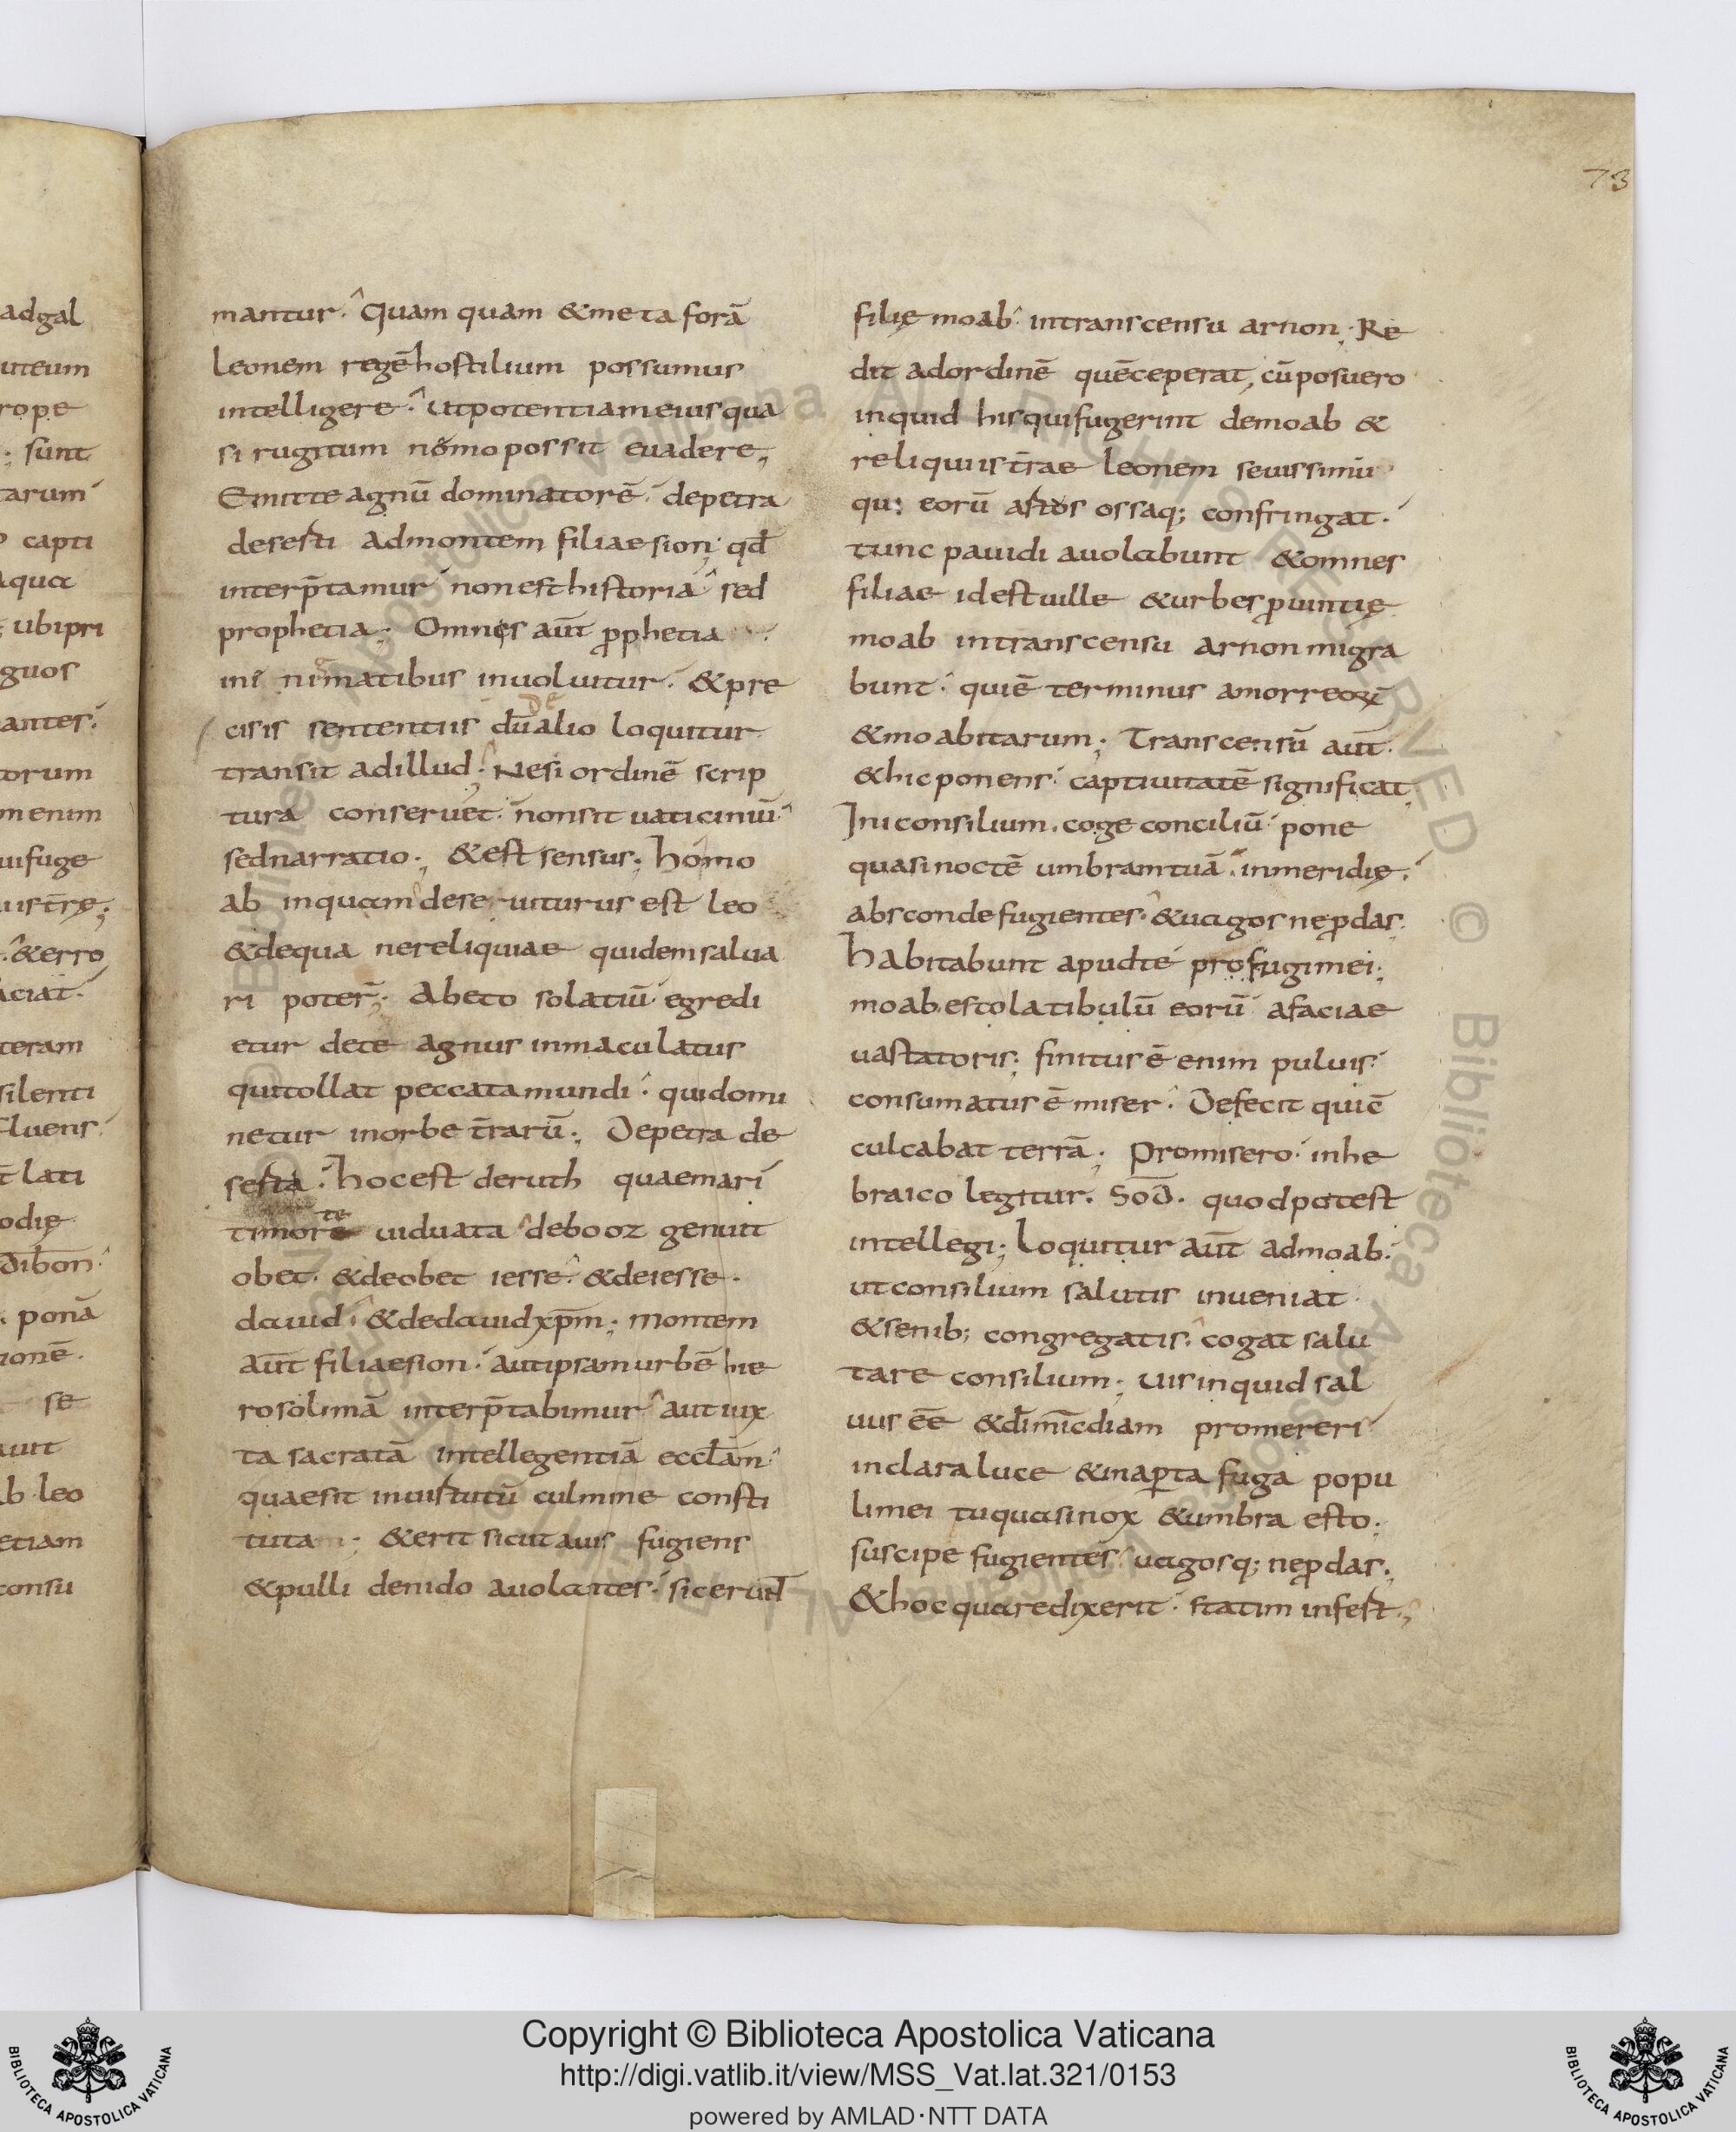 73
adgal
uteum
rope
; sunt
tarum
capti
aqua
; ubipri
guos
antes.
torum
menim
uifuge
uistr̄ę;
. &erro
aciat.
teram
silenti
fluens
lati
odię
dibon
. ponā
ionē.
se
auit
ab leo
etiam
consu
mantur. Quam quam &meta forā
leonem regē hostilium possumus
intelligere. Utpotentiam eius qua
si rugitum nemo possit euadere;
Emitte agnū dominatorē. depetra
deserti admontem filiae sion; qd̄
interp̄tamur non est historia sed
prophetia; Omnes aūt ꝓphetia
ini nimatibus inuoluitur. & pre
cisis sententiis dū dealio loquitur
transit adillud. Nesi ordinē scrip
tura conseruet. nonsit uaticiniū
sednarratio; & est sensus; homo
ab inquam deseruiturus est leo
&dequa nereliquiae quidem salua
ri poter̄; Abeto solatiū egredi
etur dete agnus inmaculatus
quitollat peccata mundi. quidomi
netur inorbe tr̄arū; Depetra de
serta. hoc est deruth quaemari
timorte uiduata debooz genuit
obet. &deobet iesse. &deiesse.
dauid. &dedauid xp̄m; montem
aūt filiaesion. autipsam urbē hie
rosolimā interp̄tabimur aut iux
ta sacratā intellegentiā eccl̄am
quaesit inuirtutū culmine consti
tutam; &erit sicut auis fugiens
&pulli denido auolantes. sicerunt̄
filię moab. intranscensu arnon; Re
dit adordinē quēceperat, cūposuero
inquid hisquifugerint demoab &
reliquiis tr̄ae leonem seuissimū
qui eorū artos ossaq; confringat.
tunc pauidi auolabunt &omnes
filiae idestuille &urbes ꝓuintię
moab intranscensu arnon migra
bunt. quiē terminus amorreoꝝ
&moabitarum; Transcensū aūt.
&hic ponens. captiuitatē significat
Ini consilium. coge conciliū pone
quasi noctē umbramtuā. inmeridię.
absconde fugientes. &uagos ne ꝓdas.
habitabunt apudte profugi mei;
moab. esto latibulū eorū afaciae
uastatoris; finitus ē enim puluis.
consumatus ē miser. Defecit quiē
culcabat terrā; Promisero. inhe
braico legitur. SOD. quodpotest
intellegi; loquitur aūt admoab.
ut consilium salutis inueniat
&senib; congregatis. cogat salu
tare consilium; uis inquid sal
uus eē &dīmīcdiam promereri
inclara luce &inaꝑta fuga popu
limei tuquasinox &umbra esto;
suscipe fugientes uagosq; ne ꝓdas;
&hoc quare dixerit. statim infert;
Copyright © Biblioteca Apostolica Vaticana
http://digi.vatlib.it/view/MSS_Vat.lat.321/0153
powered by AMLAD・NTT DATA
BIBLIOTECA APOSTOLICA VATICANA
BIBLIOTECA APOSTOLICA VATICANA